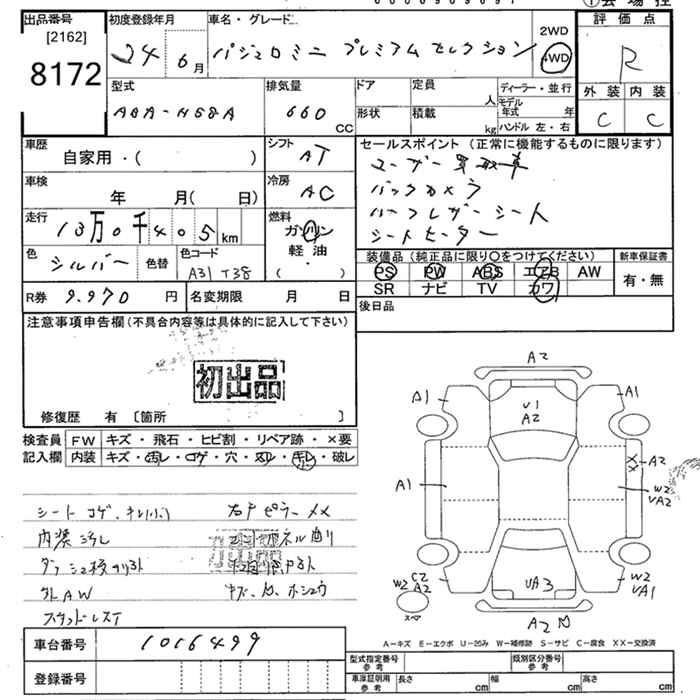 出品番号 [2162] 8172
初度登録年月 24 6月
車名・グレード パジェロミニ プレミアム セレクション
2WD 4WD
評価点 R
外装 C 内装 C
型式 ABA-H58A
排気量 660 CC
ドア 形状
定員 人
積載 kg
ディーラー・並行
モデル年式 年
ハンドル 左・右
車歴 自家用・( )
シフト AT
車検 年 月( 日)
冷房 AC
走行 13万0千405km
燃料 ガソリン 軽油 ( ・ )
色 シルバー 色替
色コード A31 T38
R券 9.970 円
名変期限 月 日
セールスポイント (正常に機能するものに限ります)
ユーザー買取車
バックカメラ
ハーフレザーシート
シートヒーター
装備品 (純正品に限り○をつけてください)
PS PW ABS エアB AW
SR ナビ TV カワ
新車保証書 有・無
後日品
注意事項申告欄(不具合内容等は具体的に記入して下さい)
初出品
修復歴 有 〔箇所 〕
検査員 FW キズ・飛石・ヒビ割・リペア跡・×要
記入欄 内装 キズ・汚レ・コゲ・穴・スリ・キレ・破レ
シート コゲ、
内装 汚れ
外AW
右Fピラー
A2
A1 U1 A2 A1
A1 XX A2
W2 UA2
C2 W2 A2 UA3 W2 UA1
スペア
A2
A-キズ E-エクボ U-凹み W-補修跡 S-サビ C-腐食 XX-交換済
車台番号 1016499
型式指定番号 参考
類別区分番号 参考
登録番号
車庫証明用 参考 長さ cm 幅 cm 高さ cm